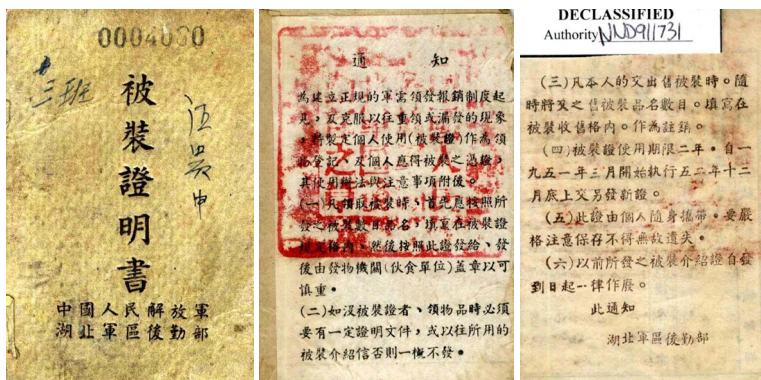 0004060
十三班
被裝證明書
汪吳申
中國人民解放軍
湖北軍區後勤部
通知
為建立正規的軍需領發報銷制度起
見，及克服以往重領或漏發的現象
，特製定個人使用(被裝證)作為領
物登記、及個人應得被裝之憑證，
其使用辦法與注意事項附後。
(一)凡領取被裝時、首先應按照所
發之被裝數目品名，填寫在被裝證
後由發物機關(伙食單位)蓋章以可
慎重。
(二)如沒被裝證者、領物品時必須
要有一定證明文件，或以往所用的
被裝介紹信否則一概不發。
DECLASSIFIED
Authority NND911731
(三)凡本人的交出舊被裝時。隨
時將交之舊被裝品名數目。填寫在
被裝收舊格內。作為註銷。
(四)被裝證使用期限二年。自一
九五一年三月開始執行五二年十二
月底上交另發新證。
(五)此證由個人隨身攜帶。要嚴
格注意保存不得無故遺失。
(六)以前所發之被裝介紹證自發
到日起一律作廢。
此通知
湖北軍區後勤部